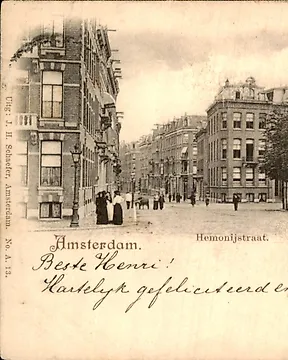 Uitg: J. H. Schaefer, Amsterdam. No. A. 13.
Amsterdam.
Hemonijstraat.
Beste Henri!
Hartelijk gefeliciteerd en